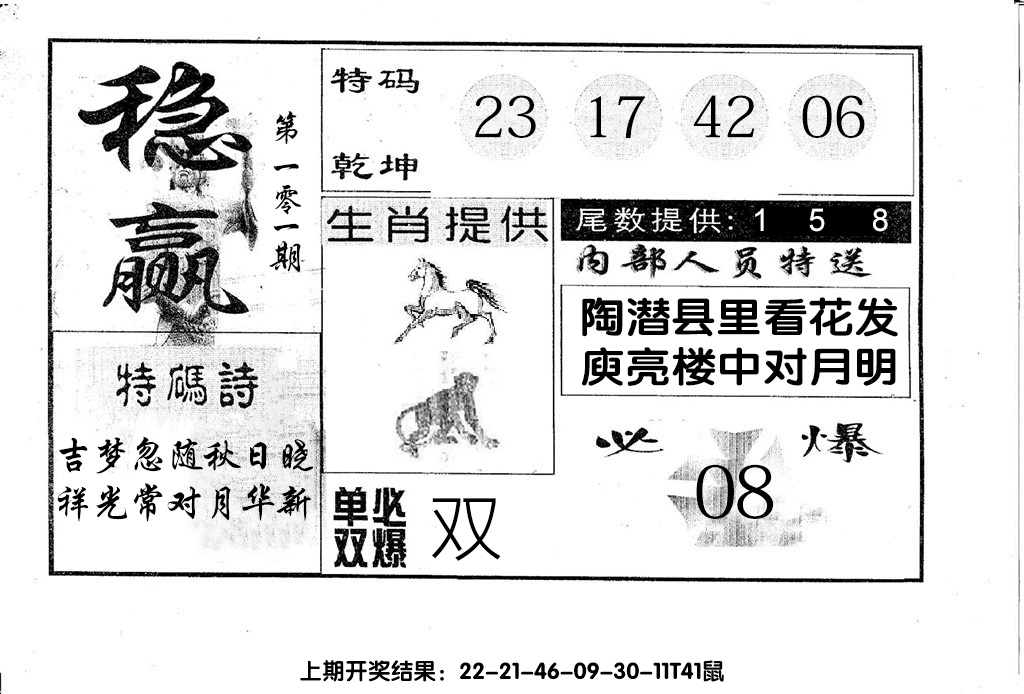 稳赢
第一零一期
特码
乾坤
23 17 42 06
生肖提供
尾数提供: 1 5 8
内部人员特送
陶潜县里看花发
庾亮楼中对月明
特碼詩
吉梦忽随秋日晓
祥光常对月华新
单双
必爆
双
必爆
08
上期开奖结果：22-21-46-09-30-11T41鼠